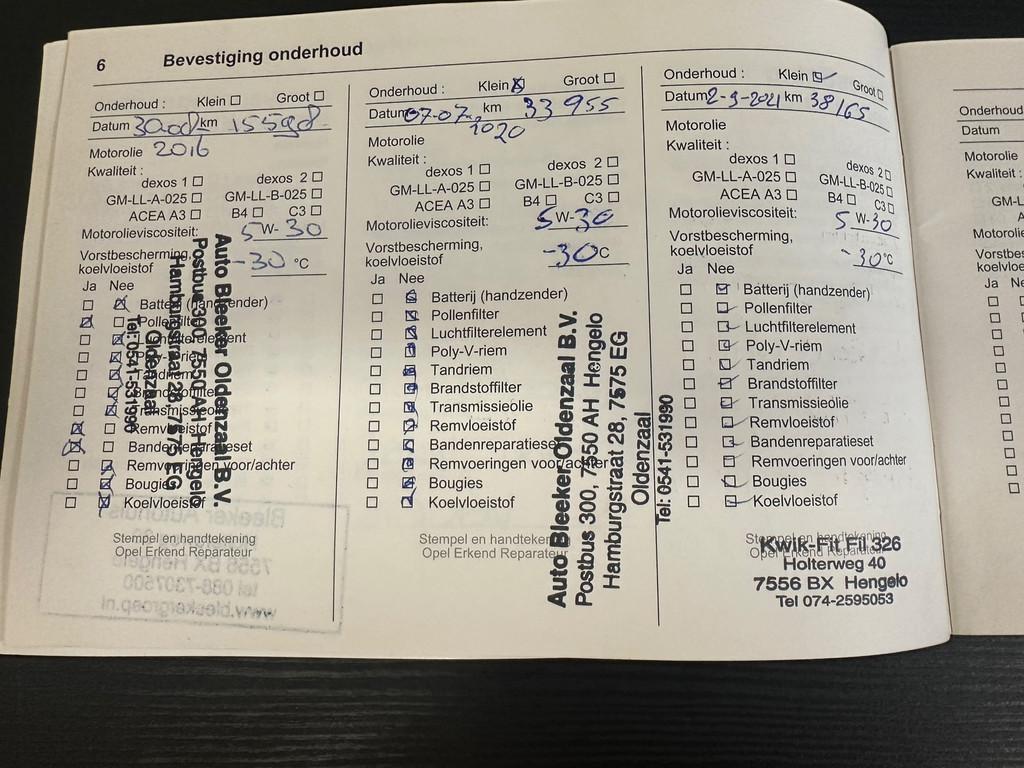 6 Bevestiging onderhoud
Onderhoud : Klein Groot
Datum 30.08 km 15598
2016
Motorolie
Kwaliteit :
dexos 1 dexos 2
GM-LL-A-025 GM-LL-B-025
ACEA A3 B4 C3
Motorolieviscositeit: 5 W- 30
Vorstbescherming,
koelvloeistof -30 °C
Ja Nee
Batterij (handzender)
Pollenfilter
Luchtfilterelement
Poly-V-riem
Tandriem
Brandstoffilter
Transmissieolie
Remvloeistof
Bandenreparatieset
Remvoeringen voor/achter
Bougies
Koelvloeistof
Stempel en handtekening
Opel Erkend Reparateur
Auto Bleeker Oldenzaal B.V.
Postbus 300, 7550 AH Hengelo
Hamburgstraat 28, 7575 EG
Oldenzaal
Tel: 0541-531990
Bleeker Autohuis
7556 BX Hengelo
tel 088-7307500
www.bleekergroep.nl
Onderhoud : Klein Groot
Datum 07.07. km 33 955
2020
Motorolie
Kwaliteit :
dexos 1 dexos 2
GM-LL-A-025 GM-LL-B-025
ACEA A3 B4 C3
Motorolieviscositeit: 5 W-30
Vorstbescherming,
koelvloeistof -30°C
Ja Nee
Batterij (handzender)
Pollenfilter
Luchtfilterelement
Poly-V-riem
Tandriem
Brandstoffilter
Transmissieolie
Remvloeistof
Bandenreparatieset
Remvoeringen voor/achter
Bougies
Koelvloeistof
Stempel en handtekening
Opel Erkend Reparateur
Auto Bleeker Oldenzaal B.V.
Postbus 300, 7550 AH Hengelo
Hamburgstraat 28, 7575 EG
Oldenzaal
Tel: 0541-531990
Onderhoud : Klein Groot
Datum 2-9-2021 km 38165
Motorolie
Kwaliteit :
dexos 1 dexos 2
GM-LL-A-025 GM-LL-B-025
ACEA A3 B4 C3
Motorolieviscositeit: 5 W-30
Vorstbescherming,
koelvloeistof -30°C
Ja Nee
Batterij (handzender)
Pollenfilter
Luchtfilterelement
Poly-V-riem
Tandriem
Brandstoffilter
Transmissieolie
Remvloeistof
Bandenreparatieset
Remvoeringen voor/achter
Bougies
Koelvloeistof
Stempel en handtekening
Opel Erkend Reparateur
Kwik-Fit Fil 326
Holterweg 40
7556 BX Hengelo
Tel 074-2595053
Onderhoud
Datum
Motorolie
Kwaliteit :
Ja